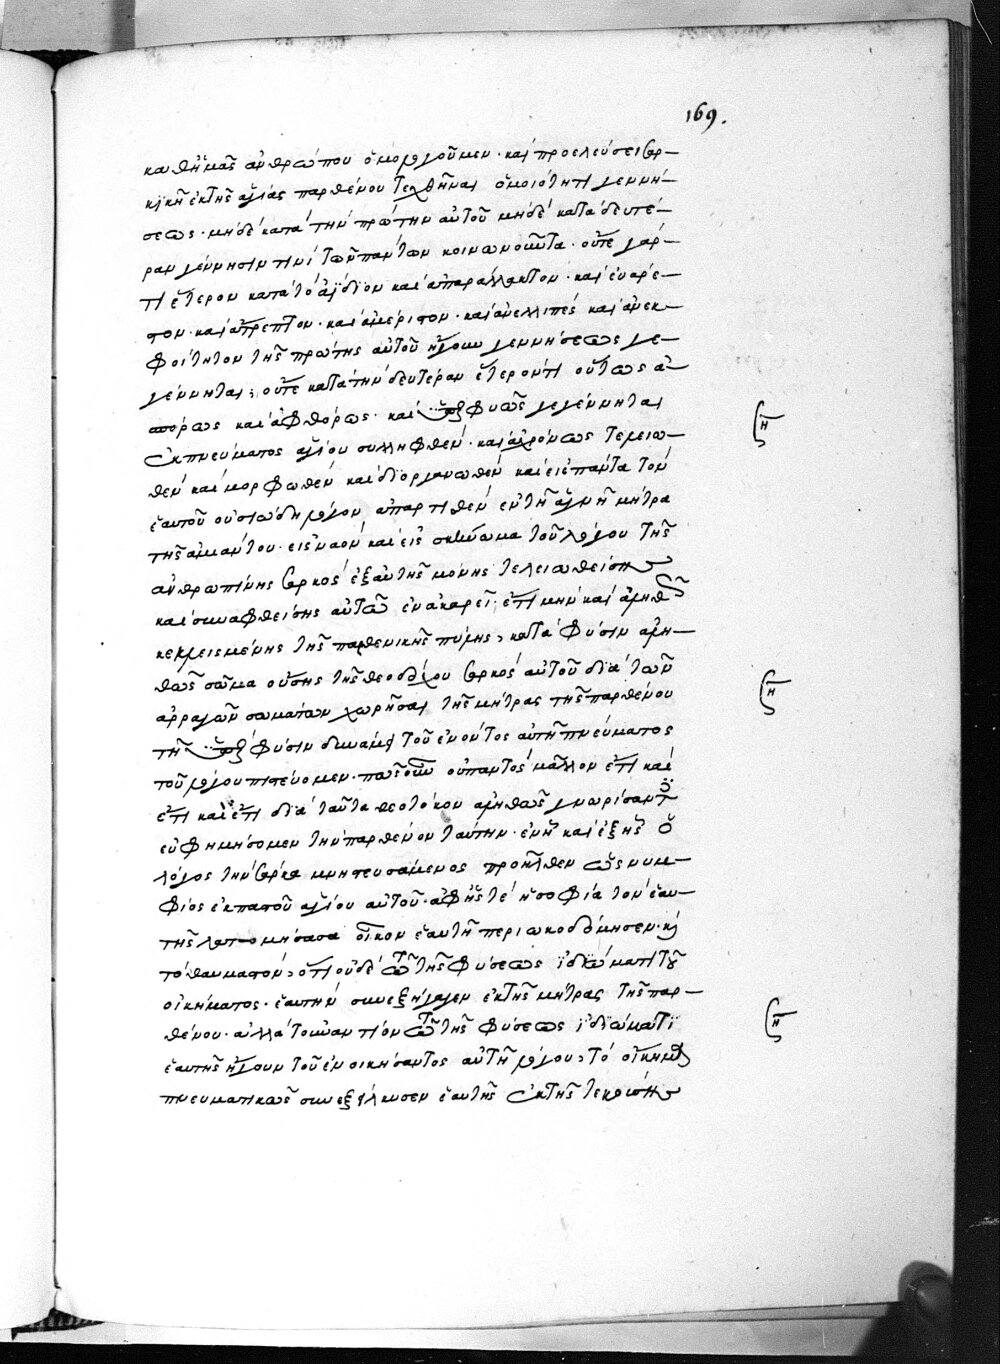 169.
καθ' ἡμᾶς ἀνθρώπου ὁμολογοῦμεν · καὶ προελεύσει σαρ-
κικῇ ἐκ τῆς ἁγίας παρθένου τεχθῆναι ὁμοιότητι γεννή-
σεως · μηδὲ κατὰ τὴν πρώτην αὐτοῦ μηδὲ κατὰ δευτέ-
ραν γέννησιν τινὶ τῶν πάντων κοινωνοῦντα · οὔτε γάρ
τι ἕτερον κατὰ τὸ ἀΐδιον καὶ ἀπαράλλακτον · καὶ ἐνάρε-
τον · καὶ ἄτρεπτον · καὶ ἀμέριστον · καὶ ἀνελλιπὲς καὶ ἀνεκ-
φοίτητον τῆς πρώτης αὐτοῦ ἤγουν γεννήσεως γε-
γέννηται; οὔτε κατὰ τὴν δευτέραν ἕτερόν τι οὕτως ἀ-
σπόρως καὶ ἀφθόρως · καὶ ὑπερφυῶς γεγέννηται
ἐκ πνεύματος ἁγίου συλληφθέν · καὶ ἀχρόνως τελειω-
θὲν καὶ μορφωθὲν καὶ διοργανωθὲν καὶ εἰς πάντα τὸν
ἑαυτοῦ οὐσιώδη λόγον ἀπαρτισθὲν ἐν τῇ ἁγνῇ μήτρᾳ
τῆς ἀμιάντου · εἰς ναὸν καὶ εἰς σκήνωμα τοῦ λόγου τῆς
ἀνθρωπίνης σαρκὸς ἐξ αὐτῆς μόνης τελειωθείσης
καὶ συναφθείσης αὐτῷ ἐν ἀκαρεῖ; ἔτι μὴν καὶ ἀληθῶς
κεκλεισμένης τῆς παρθενικῆς πύλης, κατὰ φύσιν ἀλη-
θῶς σῶμα οὔσης τῆς θεοδόχου σαρκὸς αὐτοῦ διὰ τῶν
ἀρραγῶν σωμάτων χωρῆσαι τῆς μήτρας τῆς παρθένου
τῇ ὑπὲρ φύσιν δυνάμει τοῦ ἐνόντος αὐτῇ πνεύματος
τοῦ λόγου πιστεύομεν · πῶς οὖν οὐ παντὸς μᾶλλον ἔτι καὶ
ἔτι καὶ ἔτι διὰ ταῦτα θεοτόκον ἀληθῶς γνωρίσαντες
εὐφημήσομεν τὴν παρθένον ταύτην · ἐν ᾗ καὶ ἐξ ἧς ὁ
λόγος τὴν σάρκα μνηστευσάμενος προῆλθεν ὡς νυμ-
φίος ἐκ παστοῦ ἁγίου αὐτοῦ · ἀφ' ἧς τε ἡ σοφία τὸν ἑαυ-
τῆς λατομήσασα οἶκον ἑαυτῇ περιωκοδόμησεν · καὶ
τὸ θαυμαστόν, ὅτι οὐδὲ τῷ τῆς φύσεως ἰδιώματι τοῦ
οἰκήματος · ἑαυτὴν συνεξήγαγεν ἐκ τῆς μήτρας τῆς παρ-
θένου · ἀλλὰ τοὐναντίον τῷ τῆς φύσεως ἰδιώματι
ἑαυτῆς ἤγουν τοῦ ἐνοικήσαντος αὐτῇ λόγου, τὸ οἴκημα
πνευματικῶς συνεξείλκυσεν ἑαυτῆς ἐκ τῆς τεκούσης